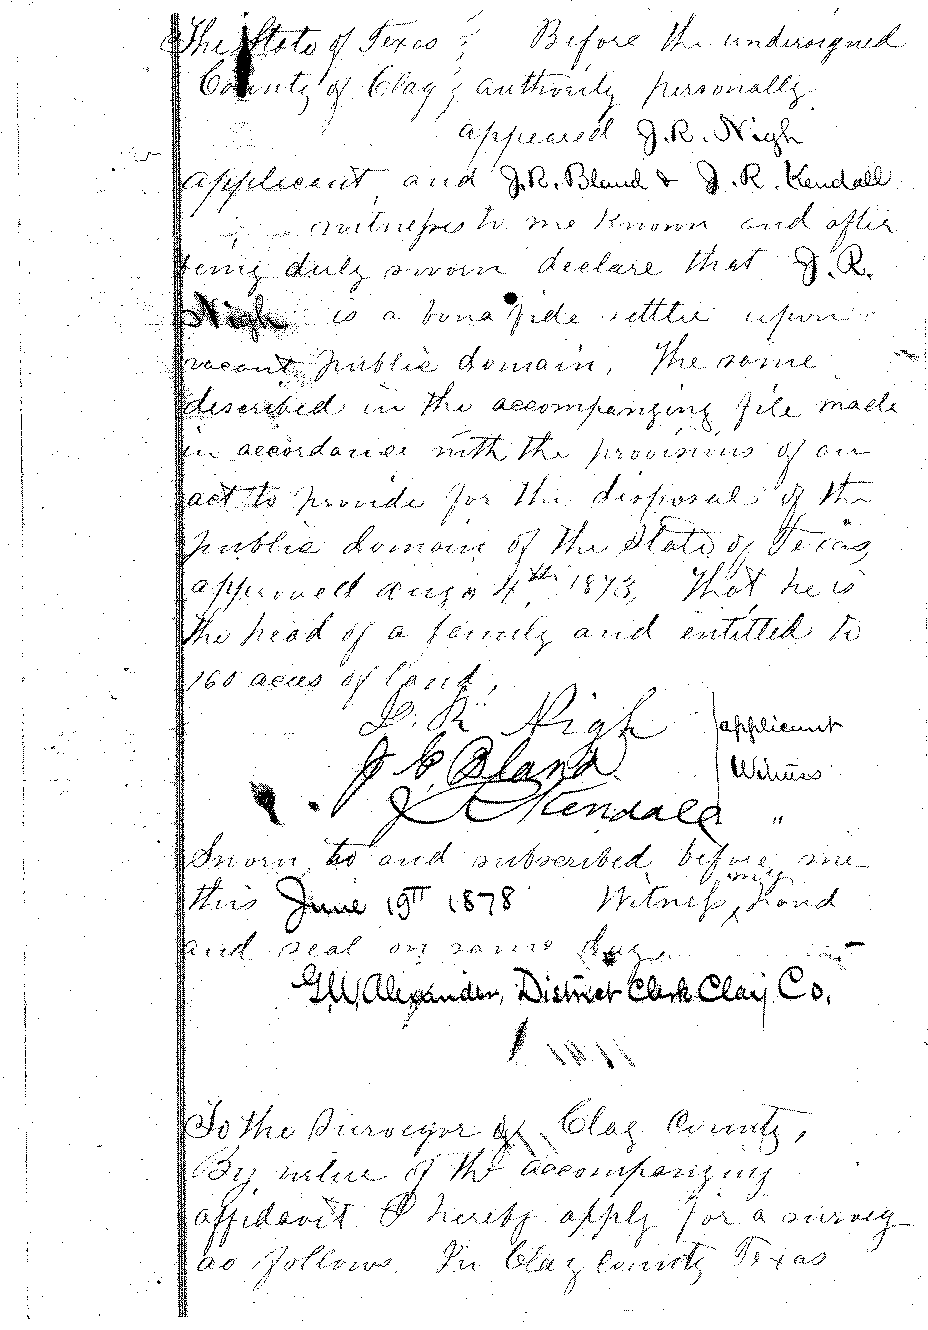 The State of Texas } Before the undersigned
County of Clay } authority personally
appeared J. R. Nigh
applicant and J. R. Bland & J. R. Kendall
witness to me known and after
being duly sworn declare that J. R.
Nigh is a bona fide settler upon
vacant public domain. The same
described in the accompanying file made
in accordance with the provisions of an
act to provide for the disposal of the
public domain of the State of Texas,
approved Aug 4th 1873, That he is
the head of a family and entitled to
160 acres of land,
R. Nigh applicant
J C Bland Witness
J Kendall "
Sworn to and subscribed before me
this June 19th 1878 Witness my hand
and seal on same day
G.W. Alexander, District Clerk Clay Co.
To the Surveyor of Clay County,
By virtue of the accompanying
affidavit I hereby apply for a survey
as follows. In Clay County Texas